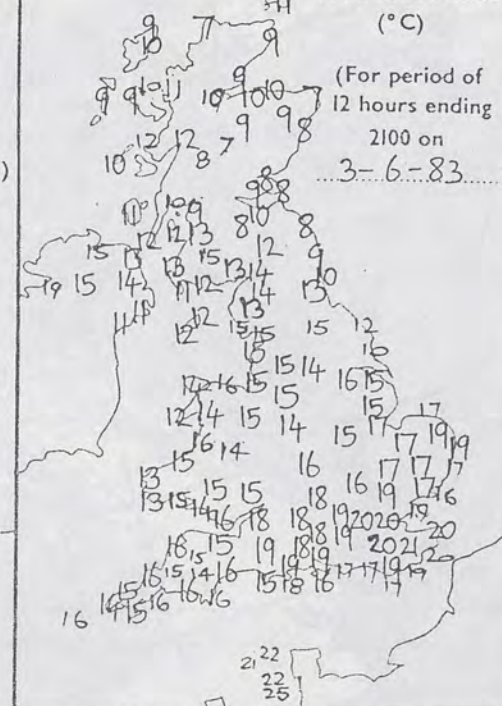 (°C)
(For period of
12 hours ending
2100 on
3-6-83
)
9 7 9
10
9
9 9 10 11 10 10 10 7
9 9 8
12 12 7
10 8
8
9 8
11 10 9 8 10 8
12 12 13
15 13 15 12 9
13 13 14 10
19 15 14 11 12 14 13
11 11 12 13
12 15 15 15 12
15 16
14 16 15 15 14 16 15
15 15
12 14 15 14 17 17
16 14 15 17 19 19
15 16 17 17 17
13 15 15 16 19 17 16
13 15 14 18
16 18 18 19 20 20 19 20
16 15 15 19 18 18 19 20 21 20
16 15 14 16 19 19 17 17 19 19
15 16 15 18 16 17
16 14 15 16 16
16
21 22
22
25